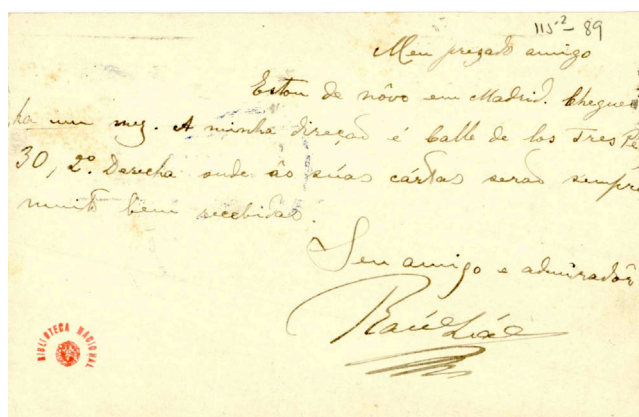 115²-89
Meu prezado amigo
Estou de nôvo em Madrid. Cheguei
ha um mez. A minha direção é Calle de los Tres Pe
30, 2º. Derecha onde ás súas cártas serão sempre
muito bem recebidas.
Seu amigo e admiradôr
Raúl Leal
BIBLIOTECA NACIONAL